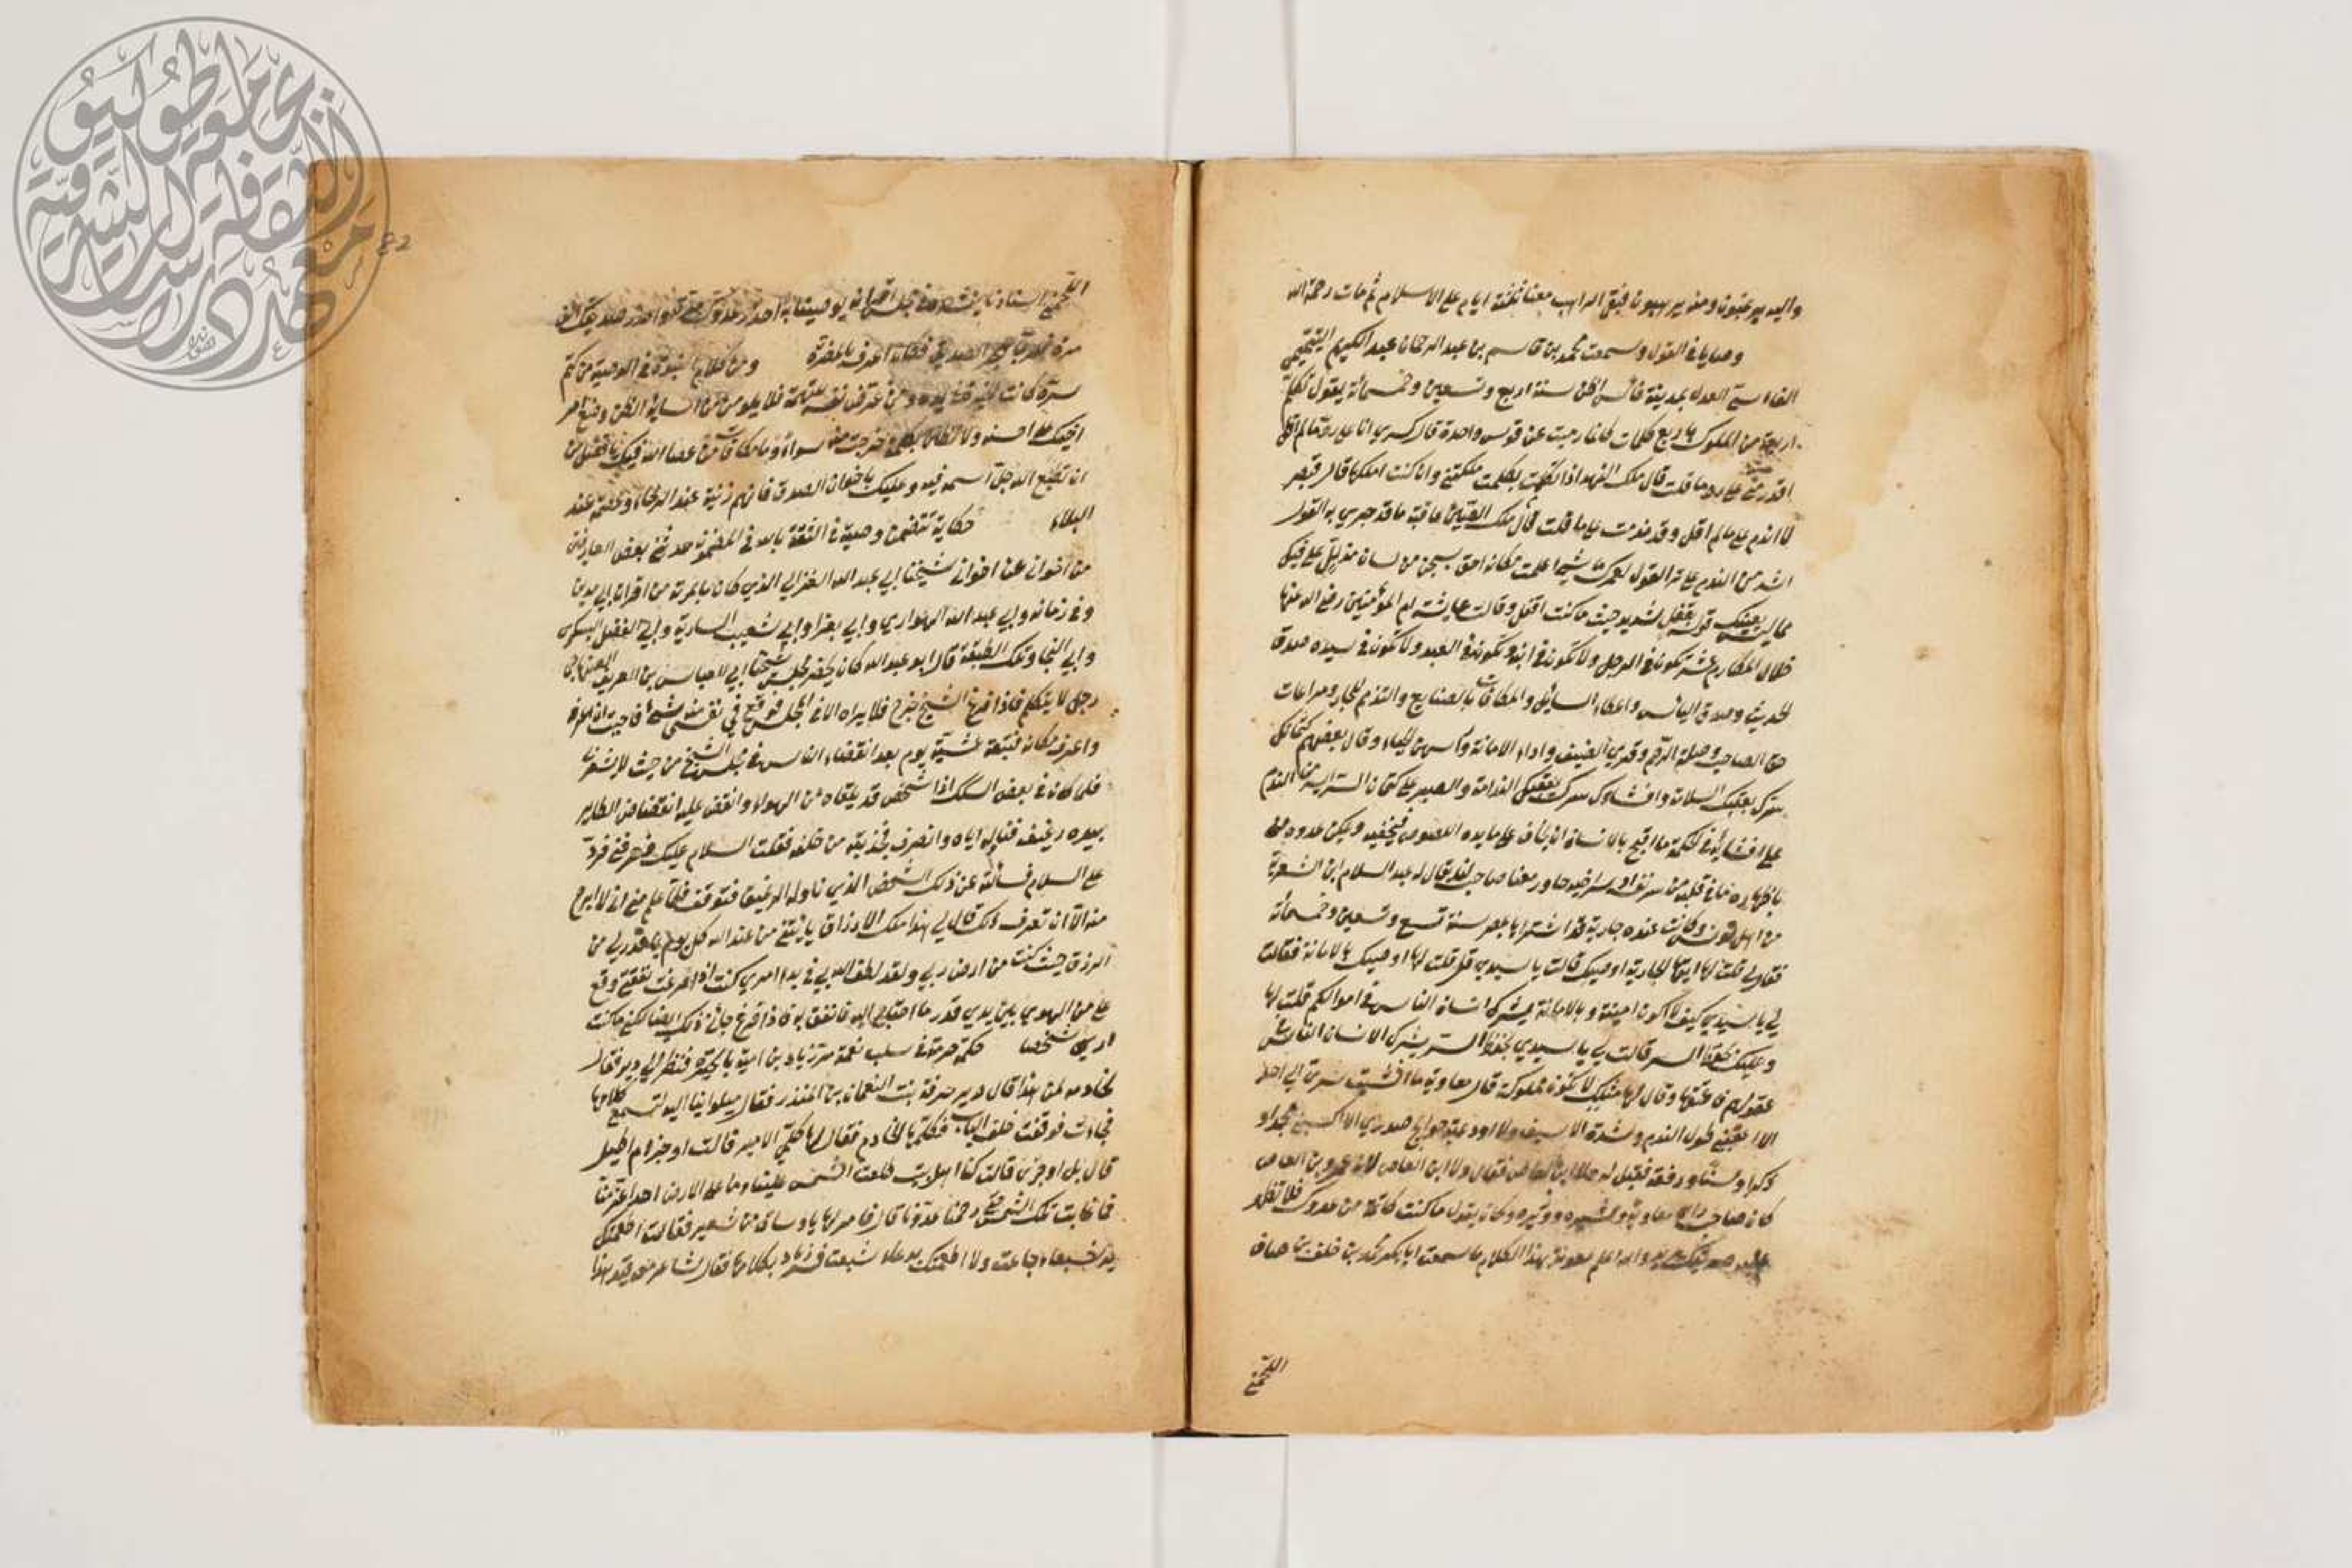 واليه يرغبون ومنه يرهبون فبقي الراهب معنا ثلثة ايام على الاسلام ثم مات رحمه الله
وصايا في القول وسمعت محمد بن قاسم بن عبد الرحمان عبد الكريم التميمي
الفاسي العدل بمدينة فاس سنة اربع وتسعين وخمسمائة يقول تكلم
اربعة من الملوك باربع كلمات كانما رميت عن قوس واحدة قال كسرى انا على رد ما لم اقل
اقدر مني على رد ما قلت قال ملك الهند اذا تكلمت بكلمة ملكتني وان كنت املكها قال قيصر
لا اندم على ما لم اقل وقد ندمت على ما قلت قال ملك الصين عاقبة ما قد جرى به القول
اشد من الندم على ترك القول لعمرك ما شيء علمت مكانه احق بسجن من لسان مذلل على فيك
مما ليس يعنيك قوله بقفل شديد حيث ما كنت اقفل وقالت عايشة ام المؤمنين رضي الله عنها
خلال المكارم عشرة تكون في الرجل ولا تكون في ابنه وتكون في العبد ولا تكون في سيده صدق
الحديث وصدق البأس واعطاء السايل والمكافات بالصنايع والتذمم للجار ومراعات
حق الصاحب وصلة الرحم وقرى الضيف واداء الامانة ورأسهن الحياء وقال بعضهم كتمانك
سرك يعقبك السلامة وافشاؤك سرك يعقبك الندامة والصبر على كتمان السر ايسر من الندم
على افشائه في الحكمة ما اقبح بالانسان ان يخاف على ما بيده اللصوص فيخفيه ويمكن عدوه من
باظهاره ما في قلبه من سر نفسه او سر اخيه جاور معنا صاحب لنا يقال له عبد السلام ابن الشعرية
من اهل وكانت عنده جارية قد اشتراها بمصر سنة تسع وتسعين وخمسمائة
فقال لي قلت لها ايتها الجارية اوصيك قالت يا سيدي قل قلت لها اوصيك بالامانة فقالت
لي يا سيدي كيف لا اكون امينة وبالامانة يشرك انسان الناس في اموالهم قلت لها
وعليك بحفظ السر قالت لي يا سيدي بحفظ السر يشرك الانسان الناس في
عقولهم فاعتقها وقال لها مثلك لا تكون مملوكة قال معاوية ما افشيت سري الى احد
الا اعقبني طول الندم وشدة الاسف ولا اودعته جوانح صدري الا اكسبني مجدا و
ذكرا وسناء ورفعة فقيل له ولا ابن العاص فقال ولا ابن العاص لان عمرو بن العاص
كان صاحب راي معاوية ومشيره ووزيره وكان يقول ما كنت كاتمه من عدوك فلا تظهر
عليه صديقك والله اعلم بهذا الكلام سمعت ابا بكر محمد بن خلف بن صاف
اللخمي
82
اللخمي استاذنا ينشد في مجلس اقرانه يوصينا به احذر عدوك مرة واحذر صديقك الف
مرة فلربما هجر الصديق فكان اعرف بالمضرة ومن كلام النبوة في الوصية من كتم
سره كانت الخيرة في يده ومن عرض نفسه للتهمة فلا يلومن من اساء به الظن وضع امر
اخيك على احسنه ولا تظنن بكلمة خرجت منه سوأ وما كافات من عصا الله فيك بافضل من
ان تطيع الله جل اسمه فيه وعليك باخوان الصدق فانهم زينة عند الرخاء وعصمة عند
البلاء حكاية تتضمن وصية في الثقة بالله في المضمون حدثني بعض العارفين
من اخواني عن اخوانه شيخنا ابي عبد الله الغزالي الذي كان بالمرية من اقران ابي مدين
وفي زمانه وابي عبد الله الهواري وابي يعزا وابي شعيب السارية وابي الفضل اليشكري
وابي النجا وتلك الطبقة قال ابو عبد الله كان يحضر مجلس شيخنا ابي العباس بن العريف الصنهاجي
رجل لا يتكلم فاذا فرغ الشيخ خرج فلا يراه الا في المجلس فوقع في نفسي منه شيء فاحببت ان اعرفه
واعرف مكانه فتبعته عشية يوم بعد انقضاء الناس في مجلس الشيخ من حيث لا يشعر بي
فلما كان في بعض السكك اذا شخص قد يلقاه من الهواء وانقض عليه انقضاض الطاير
بيده رغيف فناوله اياه وانصرف فجذبته من خلفه فقلت السلام عليك فعرفني فرد
على السلام فسألته عن ذلك الشخص الذي ناوله الرغيف فتوقف فلما علم مني اني لا ابرح
منه الا ان تعرف ذلك قال لي هذا ملك الارزاق ياتيني من عند الله كل يوم بما قدر لي من
الرزق حيث كنت من ارض ربي ولقد لطف الله بي في بدء امري كنت اذا فرغت نفقتي وقع
على من الهوي بين يدي قدر ما احتاج اليه فانفق به فاذا فرغ جائني ذلك ايضا لكني ما كنت
ارى شخصا حكمة حرمة في سلب نعمة مر زياد بن امية بالحيرة فنظر الى دير فقال
لخادمه لمن هذا قال دير حرقة بنت النعمان بن المنذر فقال ميلوا بنا اليه لنسمع كلامها
فجاءت فوقفت خلف الباب فكلمها الخادم فقال لها كلمي الامير قالت اوجز ام اطيل
قال بل اوجزي قالت كنا اهل بيت طلعت الشمس علينا وما على الارض احد اعز منا
فما غابت تلك الشمس حتى رحمنا عدونا قال فامر لها باوساق من شعير فقالت اطعمتك
يد شبعاء جاعت ولا اطعمتك يد شبعت فسر زياد بكلامها فقال لشاعر معه قيد هذا